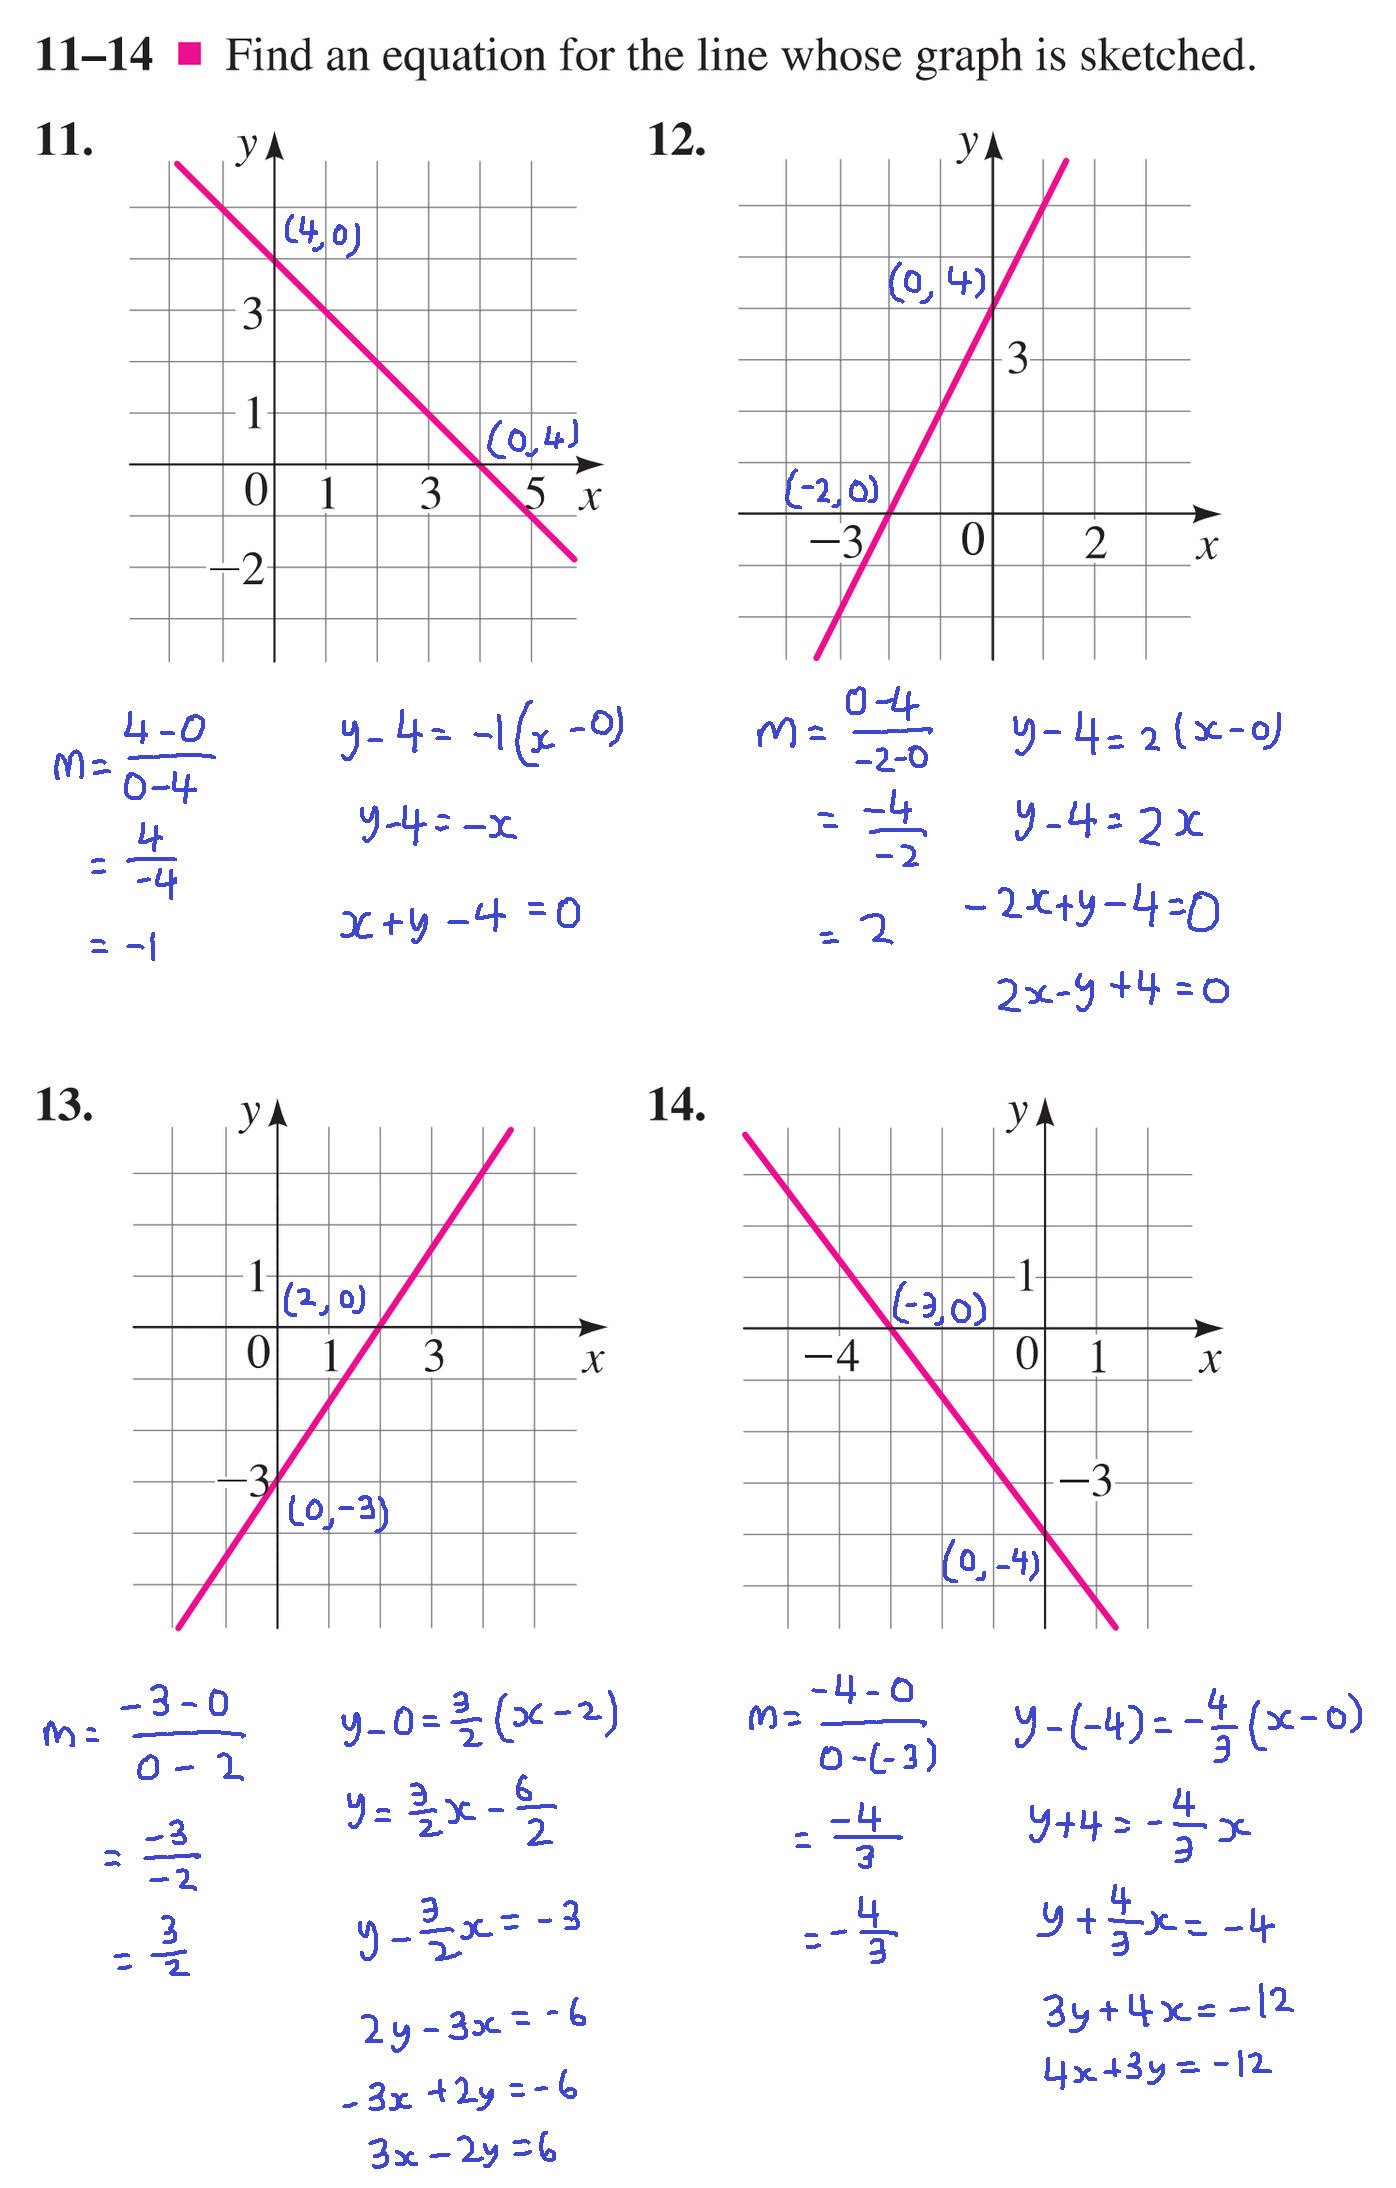 11–14 ■ Find an equation for the line whose graph is sketched.
11.
y
(4,0)
3
1
(0,4)
0 1 3 5 x
−2
m = (4-0)/(0-4)
= 4/-4
= -1
y-4 = -1(x-0)
y-4 = -x
x+y-4 = 0
12.
y
(0, 4)
3
(-2,0)
−3 0 2 x
m = (0-4)/(-2-0)
= -4/-2
= 2
y-4 = 2(x-0)
y-4 = 2x
-2x+y-4=0
2x-y+4=0
13.
y
1
(2,0)
0 1 3 x
−3
(0,-3)
m = (-3-0)/(0-2)
= -3/-2
= 3/2
y-0 = 3/2 (x-2)
y = 3/2 x - 6/2
y - 3/2 x = -3
2y-3x = -6
-3x+2y = -6
3x-2y = 6
14.
y
1
(-3,0)
−4 0 1 x
−3
(0,-4)
m = (-4-0)/(0-(-3))
= -4/3
= -4/3
y-(-4) = -4/3 (x-0)
y+4 = -4/3 x
y + 4/3 x = -4
3y+4x = -12
4x+3y = -12